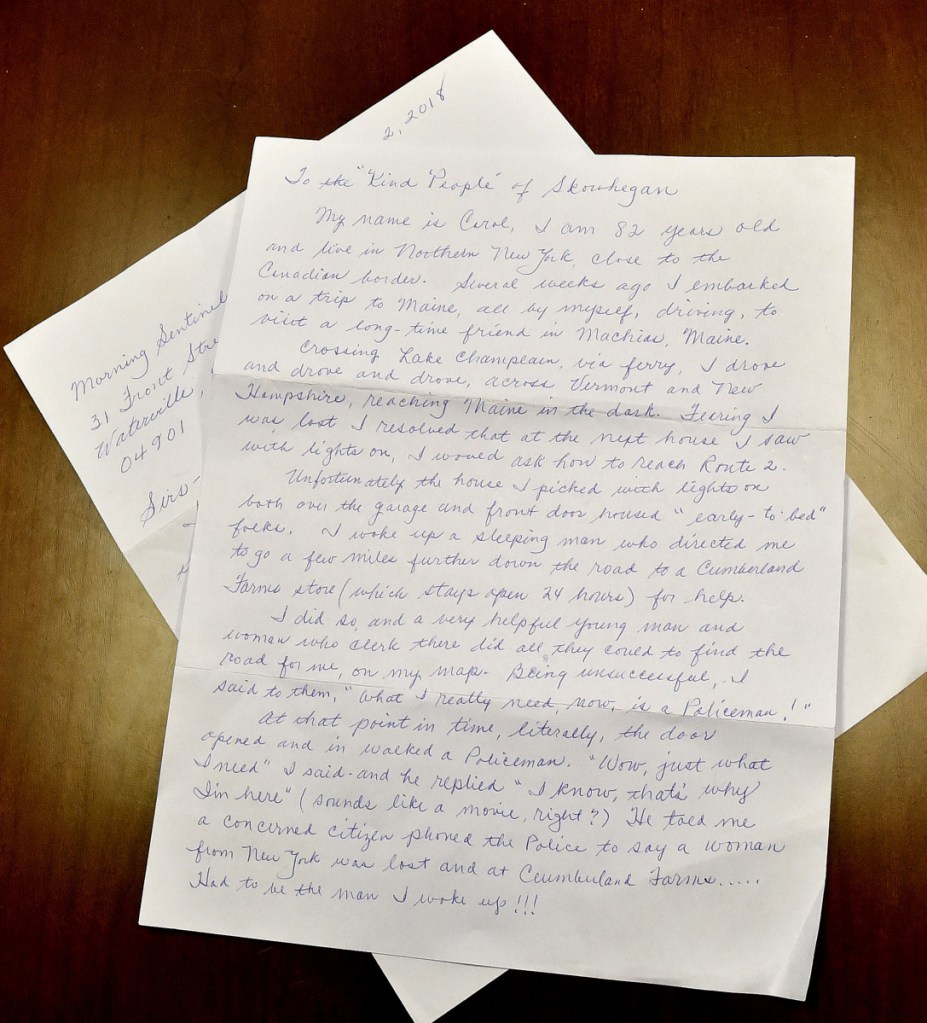 2, 2018
Morning Sentinel
31 Front Stre
Waterville,
04901
Sirs-
To the "Kind People" of Skowhegan
My name is Carol, I am 82 years old
and live in Northern New York, close to the
Canadian border. Several weeks ago I embarked
on a trip to Maine, all by myself, driving, to
visit a long-time friend in Machias, Maine.
Crossing Lake Champlain, via ferry, I drove
and drove and drove, across Vermont and New
Hampshire, reaching Maine in the dark. Feering I
was lost I resolved that at the next house I saw
with lights on, I would ask how to reach Route 2.
Unfortunately the house I picked with lights on
both over the garage and front door housed "early-to-bed"
folks. I woke up a sleeping man who directed me
to go a few miles further down the road to a Cumberland
Farms store (which stays open 24 hours) for help.
I did so, and a very helpful young man and
woman who clerk there did all they could to find the
road for me, on my map. Being unsuccessful, I
said to them, "What I really need, now, is a Policeman!"
At that point in time, literally, the door
opened and in walked a Policeman. "Wow, just what
I need" I said-and he replied "I know, that's why
I'm here" (sounds like a movie, right?) He told me
a concerned citizen phoned the Police to say a woman
from New York was lost and at Cumberland Farms.....
Had to be the man I woke up!!!